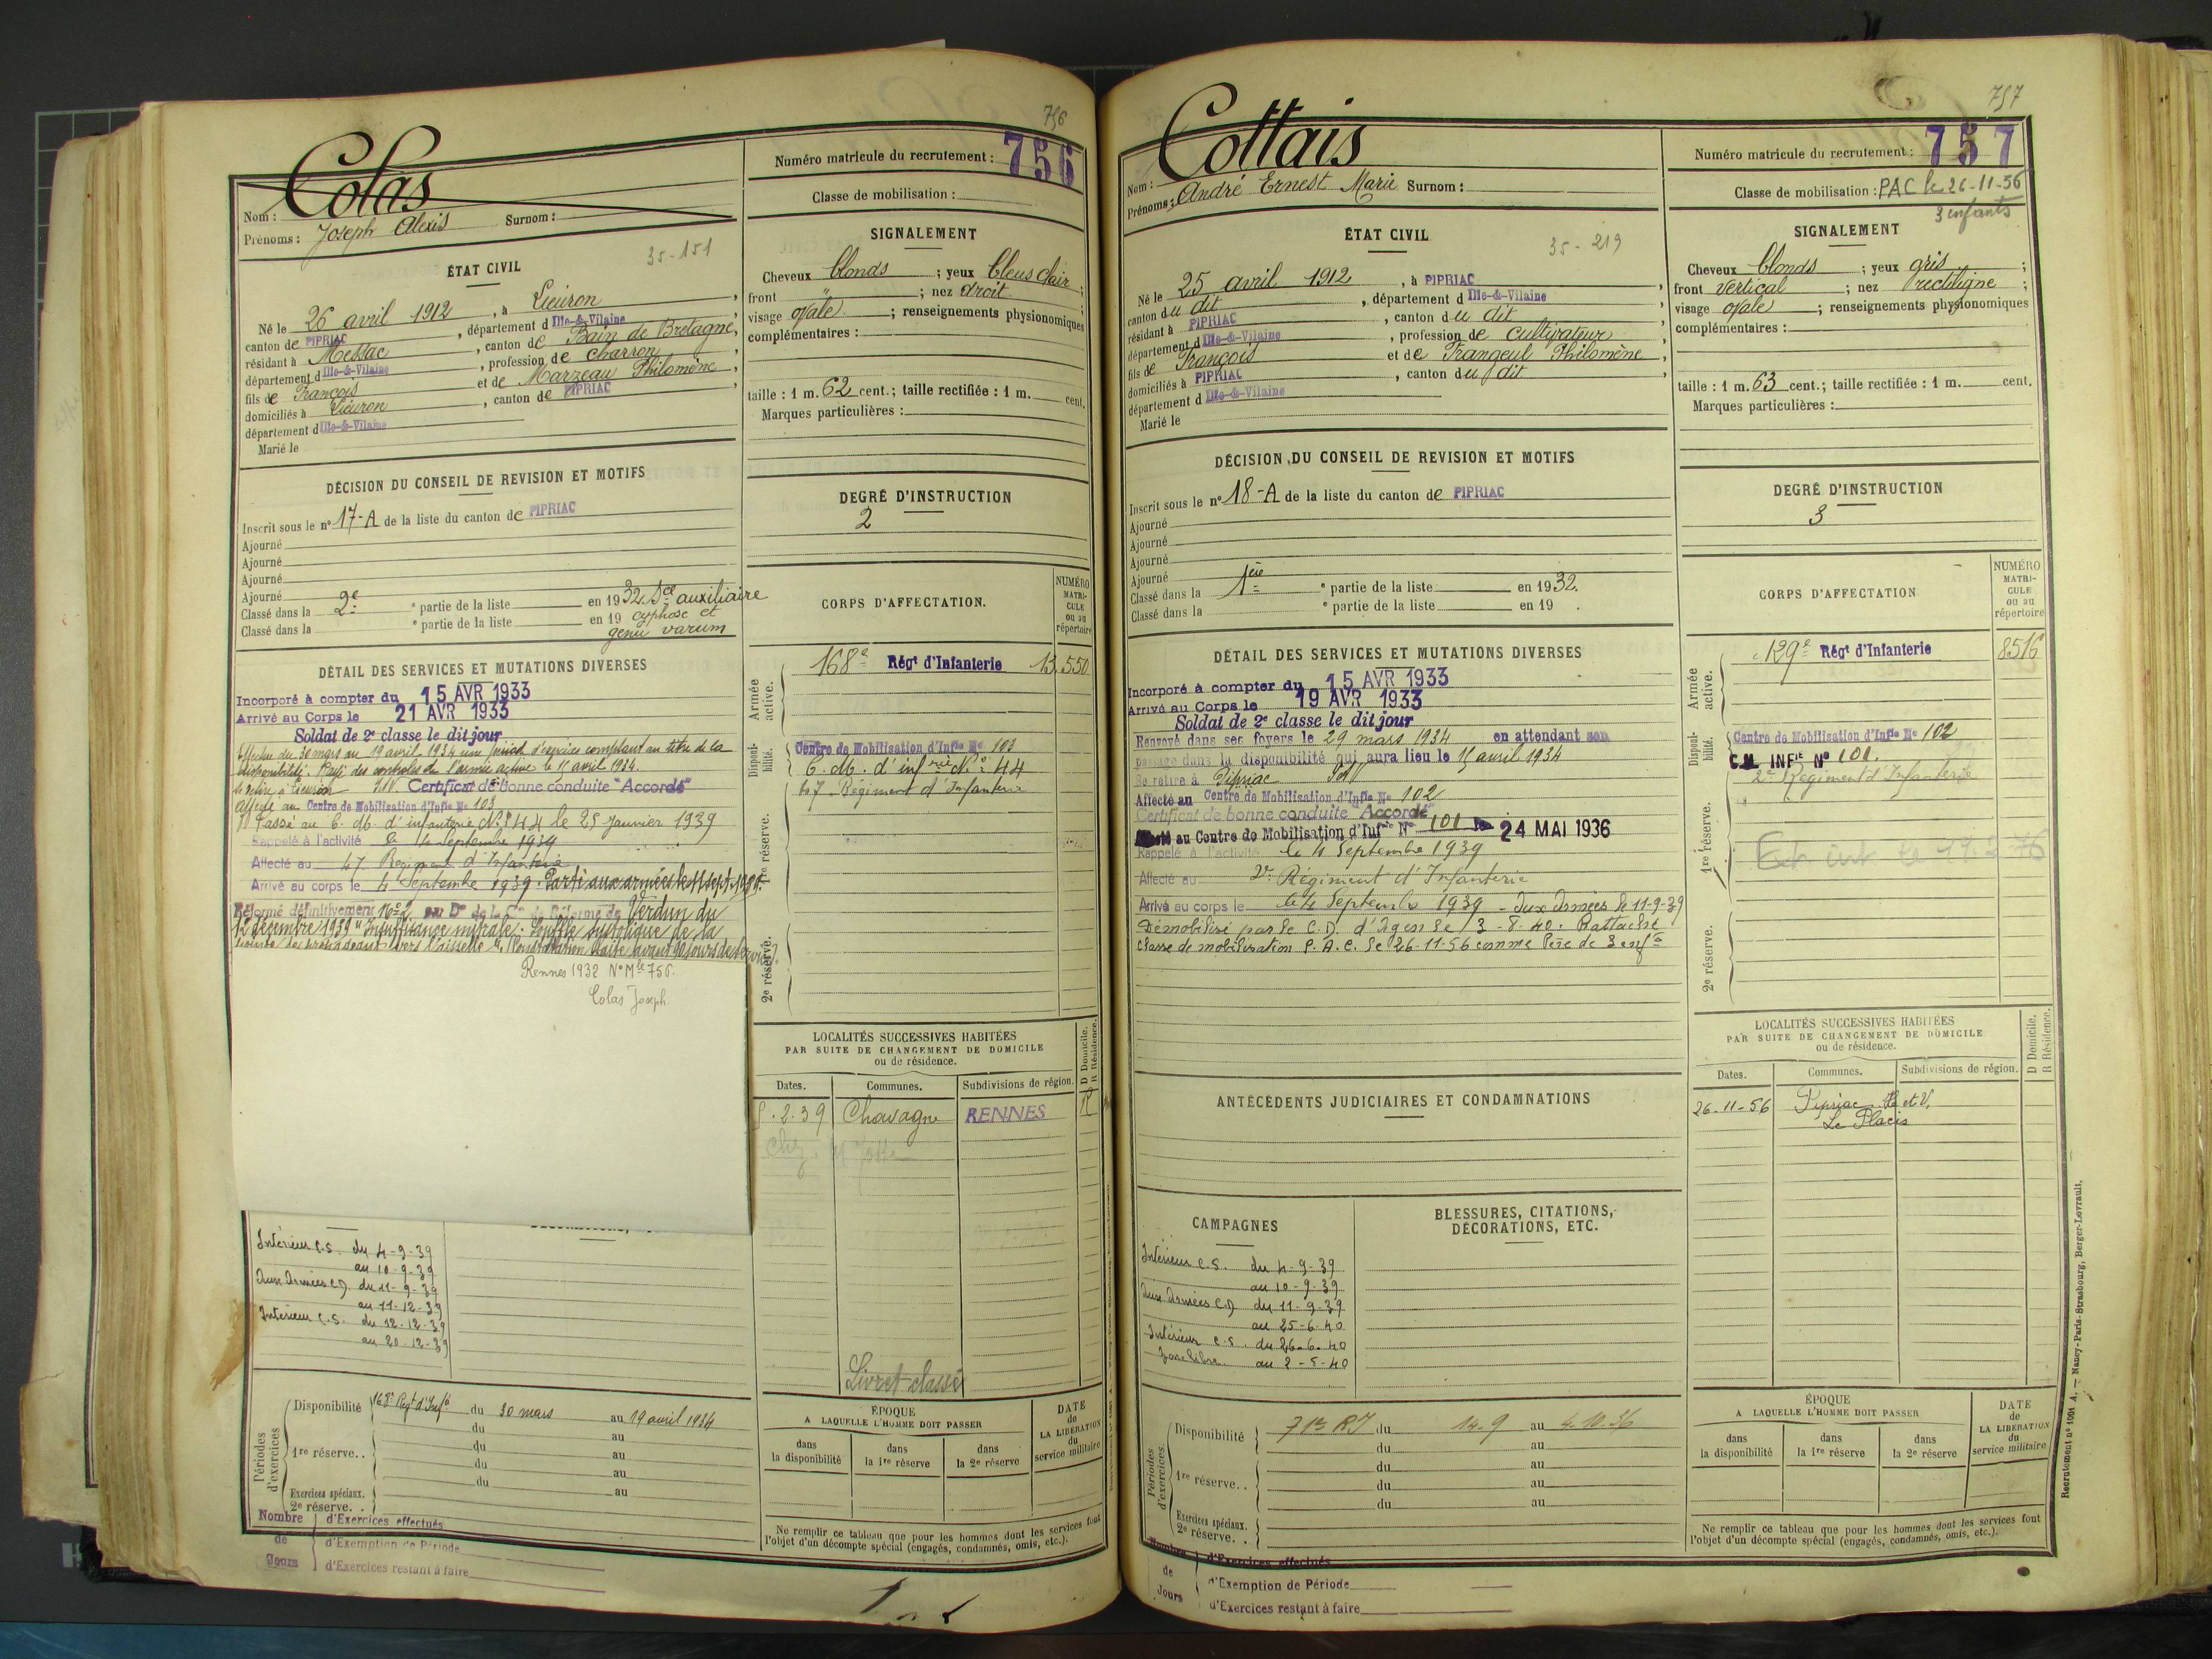 756
Colas
Nom :
Prénoms : Joseph Alexis Surnom :
Numéro matricule du recrutement : 756
Classe de mobilisation :
35-151
ÉTAT CIVIL
Né le 26 avril 1912, à Lieuron,
canton de PIPRIAC, département d Ille-&-Vilaine
résidant à Messac, canton de Bain de Bretagne,
département d Ille-&-Vilaine, profession de charron,
fils de François et de Marzeau Philomène,
domiciliés à Lieuron, canton de PIPRIAC,
département d Ille-&-Vilaine
Marié le
SIGNALEMENT
Cheveux blonds ; yeux bleus clair ;
front " ; nez droit
visage ovale ; renseignements physionomiques
complémentaires :
taille : 1 m. 62 cent.; taille rectifiée : 1 m. cent.
Marques particulières :
DÉCISION DU CONSEIL DE REVISION ET MOTIFS
Inscrit sous le n° 17-A de la liste du canton de PIPRIAC
Ajourné
Ajourné
Ajourné
Ajourné
Classé dans la 2e ° partie de la liste en 1932. Sce auxiliaire
Classé dans la ° partie de la liste en 19 cyphose et
genu varum
DEGRÉ D'INSTRUCTION
2
CORPS D'AFFECTATION.
NUMÉRO MATRICULE ou au répertoire
DÉTAIL DES SERVICES ET MUTATIONS DIVERSES
Incorporé à compter du 15 AVR 1933
Arrivé au Corps le 21 AVR 1933
Soldat de 2e classe le dit jour
Effectue du 30 mars au 19 avril 1934 une période d'exercices comptant au titre de la
disponibilité. Rayé des contrôles de l'armée active le 15 avril 1934.
Se retire à Lieuron I&V. Certificat de bonne conduite "Accordé"
Affecté au Centre de Mobilisation d'Infie No 103
Passé au C. M. d'infanterie No 44 le 25 Janvier 1939
Rappelé à l'activité le 4 Septembre 1939
Affecté au 47 Régiment d'Infanterie
Arrivé au corps le 4 Septembre 1939. Parti aux armées le 11 sept. 1939.
Réformé définitivement No 2 de Réforme de Verdun du
12 décembre 1939 "Insuffisance mitrale; Souffle systolique de la
pointe se propageant vers l'aisselle".
Rennes 1932 No Mle 756.
Colas Joseph
Armée active.
168e Régt d'Infanterie 13.550
Disponibilité.
Centre de Mobilisation d'Infie No 103
C. M. d'infrie No 44
47 Régiment d'Infanterie
1re réserve.
2e réserve.
LOCALITÉS SUCCESSIVES HABITÉES
PAR SUITE DE CHANGEMENT DE DOMICILE
ou de résidence.
Dates. Communes. Subdivisions de région. D Domicile. R Résidence.
2.39 Chavagne RENNES R
Livret classé
Intérieur C.S. du 4-9-39
au 10-9-39
Aux Armées C.D. du 11-9-39
au 11-12-39
Intérieur C.S. du 12-12-39
au 20-12-39
Périodes d'exercices
Disponibilité 168e Régt d'Infie du 30 mars au 19 avril 1934
du au
1re réserve. . du au
du au
du au
Exercices spéciaux.
2e réserve. .
Nombre de Jours
d'Exercices effectués
d'Exemption de Période
d'Exercices restant à faire
ÉPOQUE
A LAQUELLE L'HOMME DOIT PASSER
dans la disponibilité
dans la 1re réserve
dans la 2e réserve
DATE de LA LIBÉRATION du service militaire
Ne remplir ce tableau que pour les hommes dont les services font
l'objet d'un décompte spécial (engagés, condamnés, omis, etc.).
757
Collais
Nom :
Prénoms : André Ernest Marie Surnom :
Numéro matricule du recrutement : 757
Classe de mobilisation : PAC le 26-11-56
3 enfants
35-219
ÉTAT CIVIL
Né le 25 avril 1912, à PIPRIAC,
canton du dit, département d Ille-&-Vilaine
résidant à PIPRIAC, canton du dit,
département d Ille-&-Vilaine, profession de cultivateur,
fils de François et de Frangeul Philomène,
domiciliés à PIPRIAC, canton du dit,
département d Ille-&-Vilaine
Marié le
SIGNALEMENT
Cheveux blonds ; yeux gris ;
front vertical ; nez rectiligne ;
visage ovale ; renseignements physionomiques
complémentaires :
taille : 1 m. 63 cent.; taille rectifiée : 1 m. cent.
Marques particulières :
DÉCISION DU CONSEIL DE REVISION ET MOTIFS
Inscrit sous le n° 18-A de la liste du canton de PIPRIAC
Ajourné
Ajourné
Ajourné
Ajourné
Classé dans la 1ère ° partie de la liste en 1932.
Classé dans la ° partie de la liste en 19 .
DEGRÉ D'INSTRUCTION
3
CORPS D'AFFECTATION
NUMÉRO MATRICULE ou au répertoire
DÉTAIL DES SERVICES ET MUTATIONS DIVERSES
Incorporé à compter du 15 AVR 1933
Arrivé au Corps le 19 AVR 1933
Soldat de 2e classe le dit jour
Renvoyé dans ses foyers le 29 mars 1934 en attendant son
passage dans la disponibilité qui aura lieu le 15 avril 1934
Se retire à Pipriac I&V
Affecté au Centre de Mobilisation d'Infie No 102
Certificat de bonne conduite "Accordé"
au Centre de Mobilisation d'Infie No 101 le 24 MAI 1936
Rappelé à l'activité le 4 Septembre 1939
Affecté au 2e Régiment d'Infanterie
Arrivé au corps le 4 Septembre 1939 - Aux Armées le 11-9-39
Démobilisé par le C.D. d'Agen le 3-8-40. Rattaché
classe de mobilisation P.A.C. le 26-11-56 comme Père de 3 enfts
Armée active.
129e Régt d'Infanterie 8516
Disponibilité.
Centre de Mobilisation d'Infie No 102
C.M. INFie No 101.
2e Régiment d'Infanterie
1re réserve.
2e réserve.
ANTÉCÉDENTS JUDICIAIRES ET CONDAMNATIONS
LOCALITÉS SUCCESSIVES HABITÉES
PAR SUITE DE CHANGEMENT DE DOMICILE
ou de résidence.
Dates. Communes. Subdivisions de région. D Domicile. R Résidence.
26-11-56 Pipriac I. et V.
Le Placis
CAMPAGNES
BLESSURES, CITATIONS,
DÉCORATIONS, ETC.
Intérieur C.S. du 4-9-39
au 10-9-39
Aux Armées C.D. du 11-9-39
au 25-6-40
Intérieur C.S. du 26-6-40
Zone libre. au
Périodes d'exercices
Disponibilité 71e RI du 14-9 au 4.10.36
du au
1re réserve. . du au
du au
Exercices spéciaux.
2e réserve. .
Nombre de Jours
d'Exercices effectués
d'Exemption de Période
d'Exercices restant à faire
ÉPOQUE
A LAQUELLE L'HOMME DOIT PASSER
dans la disponibilité
dans la 1re réserve
dans la 2e réserve
DATE de LA LIBÉRATION du service militaire
Ne remplir ce tableau que pour les hommes dont les services font
l'objet d'un décompte spécial (engagés, condamnés, omis, etc.).
Recrutement n° 1001 A. — Nancy-Paris-Strasbourg, Berger-Levrault.